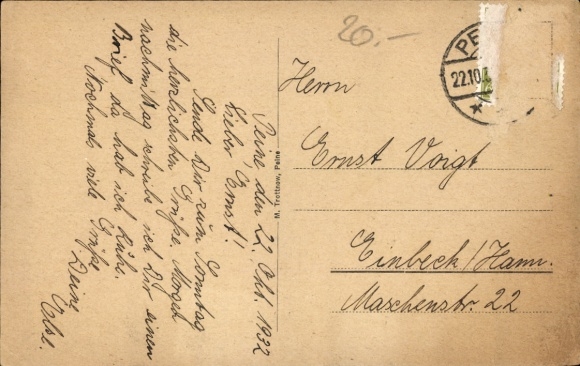 Peine den 22. Okt. 1932
Lieber Ernst!
Sende Dir zum Sonntag
die herzlichsten Grüße. Morgen
nachmittag schreibe ich Dir einen
Brief, da hab ich Ruhe.
Nochmals viele Grüße
Deine
Else.
M. Trottnow, Peine
20.-
PE
22.10.
Herrn
Ernst Voigt
Einbeck/Hann.
Maschenstr. 22